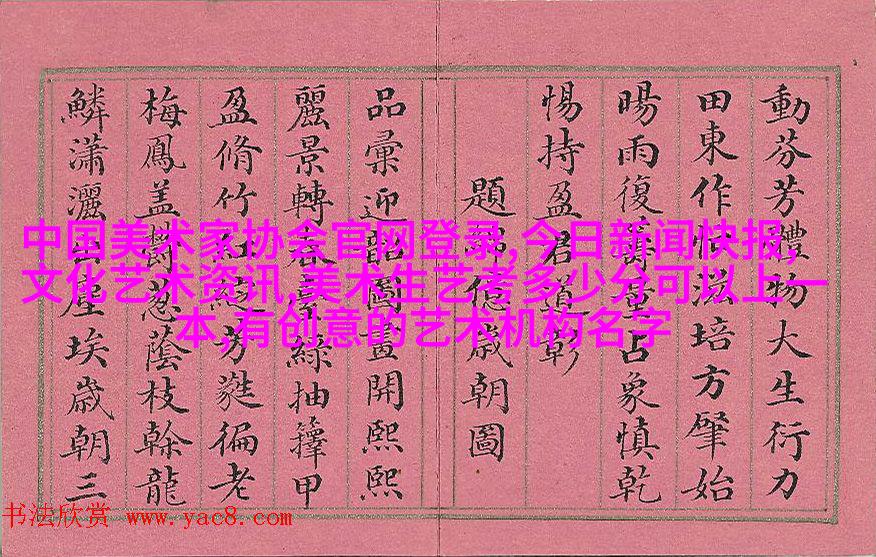 動芬芳體物大生衍力
田東作滋培方肇始
暘雨復占象慎乾
惕持盈君道彰
題歲朝圖
品彙迎韶圖畫開熙熙
麗景轉春綠抽籜甲
盈脩竹紅綻芳蕤徧老
梅鳳蓋鬱葱蔭枝榦龍
鱗瀟灑出塵埃歲朝三
中国美术家协会官网登录,今日新闻快报,
文化艺术资讯,美术生艺考多少分可以上一
本,有创意的艺术机构名字
书法欣赏 www.yac8.com